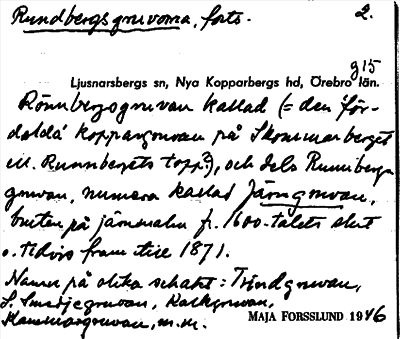 Rundbergsgruvorna, forts. 2.
g 15
Ljusnarsbergs sn, Nya Kopparbergs hd, Örebro län.
Rönnbergsgruvan kallad (= den 'för-
dolda' koppargruvan på Skommarberget
ell. Runnbergets topp?), och dels Runnbergs
gruvan, numera kallad Järngruvan,
bruten på järnmalm fr. 1600-talets slut
o. tidvis fram till 1871.
Namn på olika schakt: Trindgruvan,
S. Smedjegruvan, Kalkgruvan,
Hammargruvan, m.m.
MAJA FORSSLUND 1946